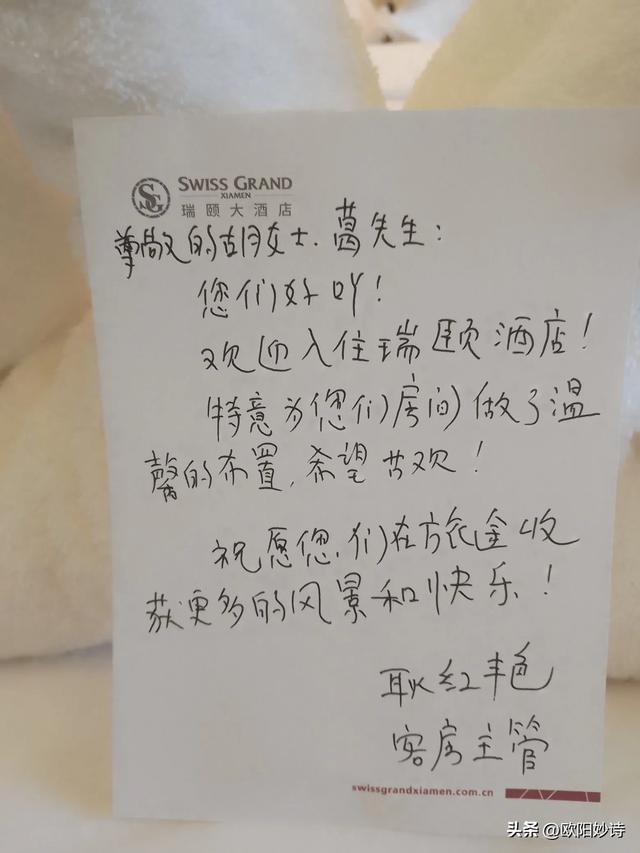 SG
SWISS GRAND
XIAMEN
瑞颐大酒店
尊敬的胡女士.葛先生:
您们好吖!
欢迎入住瑞颐酒店!
特意为您们房间做了温
馨的布置.希望喜欢!
祝愿您.们在旅途收
获更多的风景和快乐!
耿红艳
客房主管
swissgrandxiamen.com.cn
头条 @欧阳妙诗